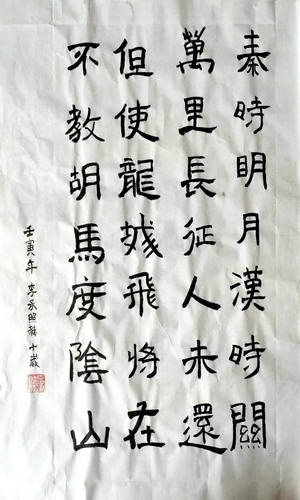 秦時明月漢時關
萬里長征人未還
但使龍城飛將在
不教胡馬度陰山
壬寅年 李承熙書 十歲